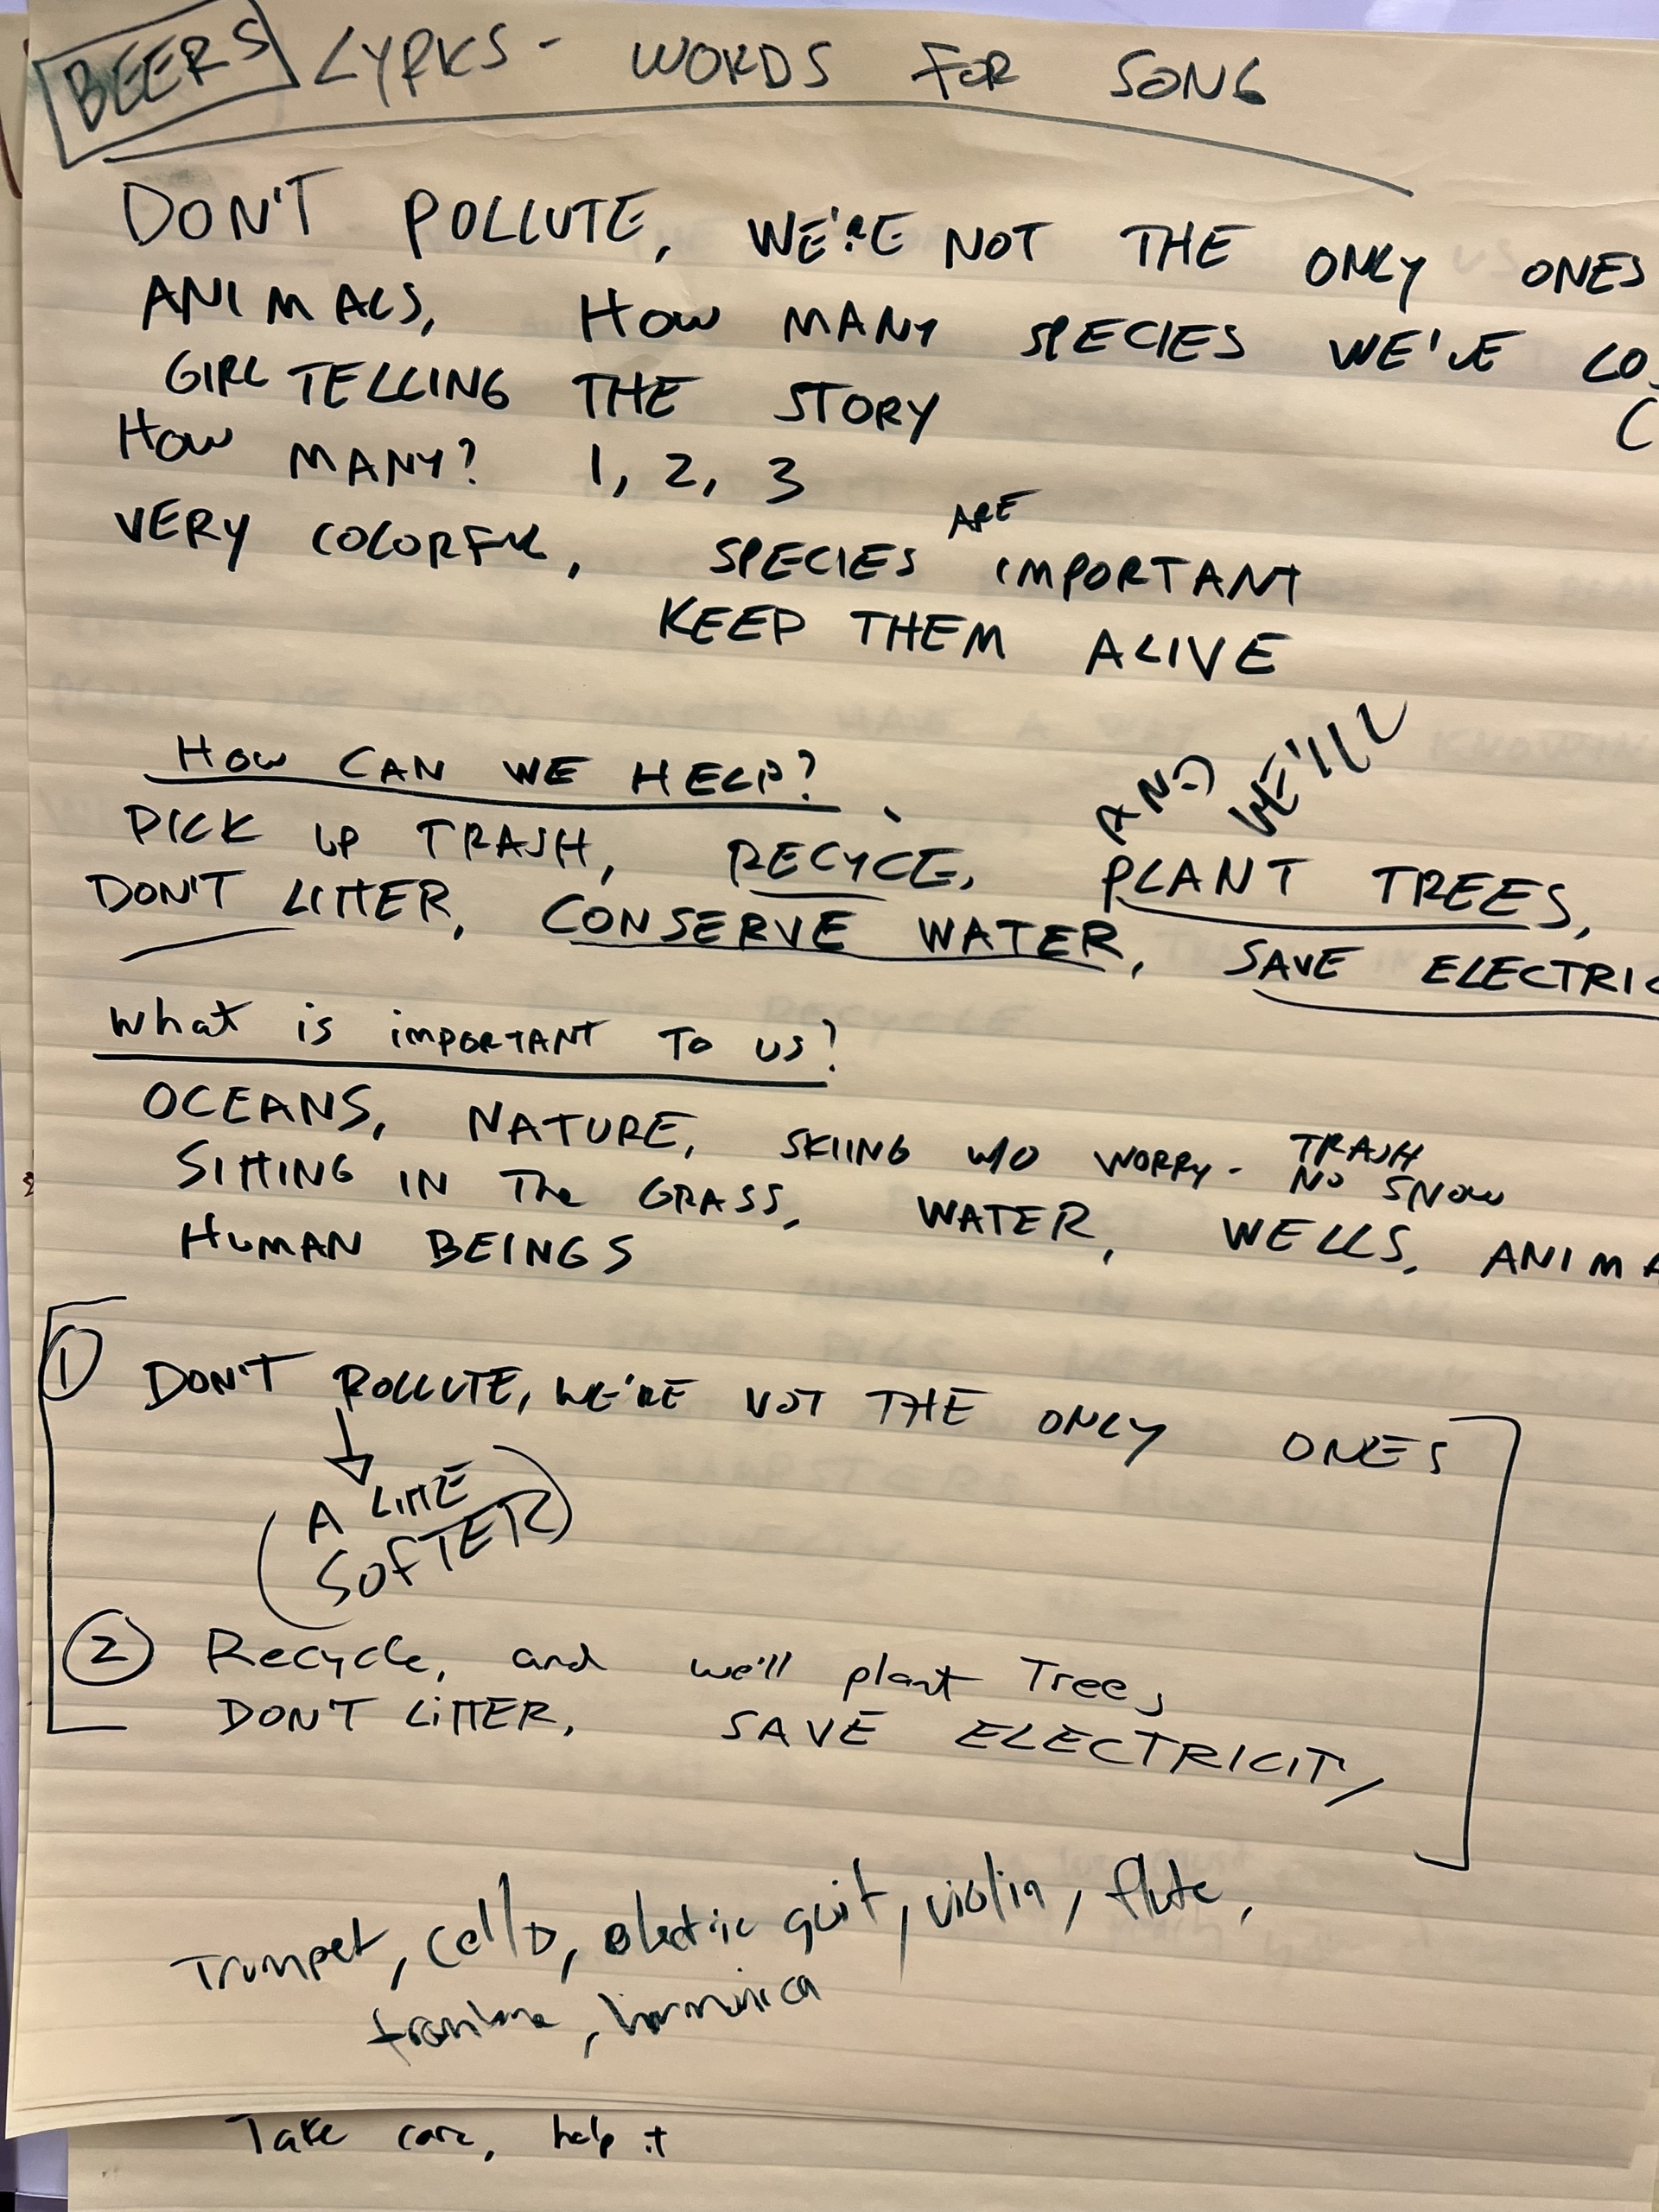 BEERS LYRKS - WORDS FOR SONG
DON'T POLLUTE, WE'RE NOT THE ONLY ONES
ANIMALS, HOW MANY SPECIES WE'VE LOS
GIRL TELLING THE STORY
HOW MANY? 1, 2, 3
ARE
VERY COLORFUL, SPECIES IMPORTANT
KEEP THEM ALIVE
AND WE'LL
HOW CAN WE HELP?
PICK UP TRASH, RECYCE, PLANT TREES,
DON'T LITTER, CONSERVE WATER, SAVE ELECTRIC
What is IMPORTANT TO US?
OCEANS, NATURE, SKIING W/O WORRY - TRASH
NO SNOW
SITTING IN The GRASS, WATER, WELLS, ANIMA
HUMAN BEINGS
1 DON'T POLLUTE, WE'RE NOT THE ONLY ONES
(A LITTLE
SOFTER)
2 Recycle, and we'll plant Trees
DON'T LITTER, SAVE ELECTRICITY
Trumpet, cello, electric guit, violin, flute,
harmonica
Take care, help it